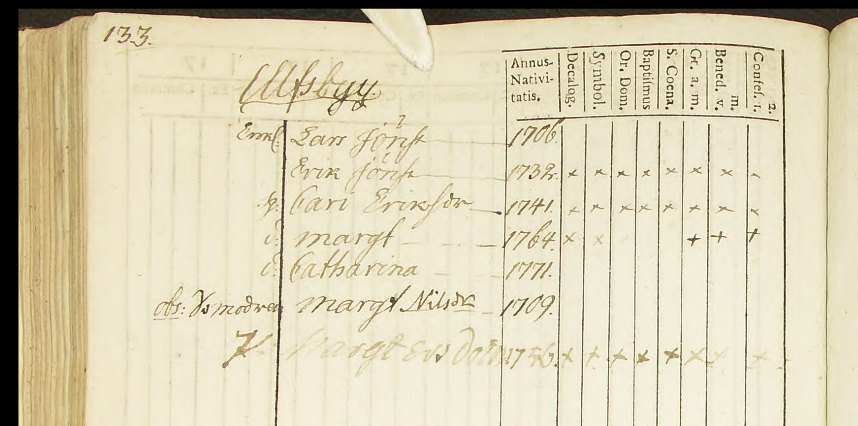 133.
Ulfsbyy.
Annus Nativitatis. Decalog. Symbol. Or. Dom. Baptismus S. Coena. Gr. a. m. Bened. v. m. Confes. 1. 2.
Lars Jönss 1706.
Erik Jönss 1732. × × × × × × × ×
h: Cari Eriksdr 1741. × × × × × × × ×
d: margt 1764 × × + + +
d: Catharina 1771.
obs: margt Nilsdr 1709.
Margt Ers 1756. × + + + + × × ×